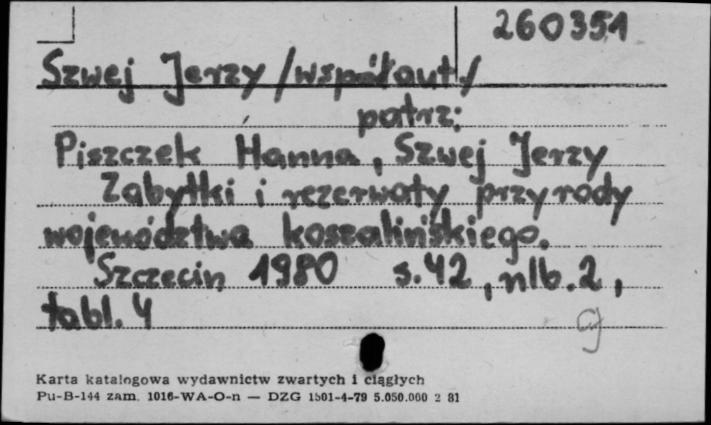 260351
Szwej Jerzy /współaut./
patrz:
Piszczek Hanna, Szwej Jerzy
Zabytki i rezerwaty przyrody
województwa koszalińskiego.
Szczecin 1980 s.42, nlb.2,
tabl. 4
Karta katalogowa wydawnictw zwartych i ciągłych
Pu-B-144 zam. 1016-WA-O-n — DZG 1501-4-79 5.050.000 2 81